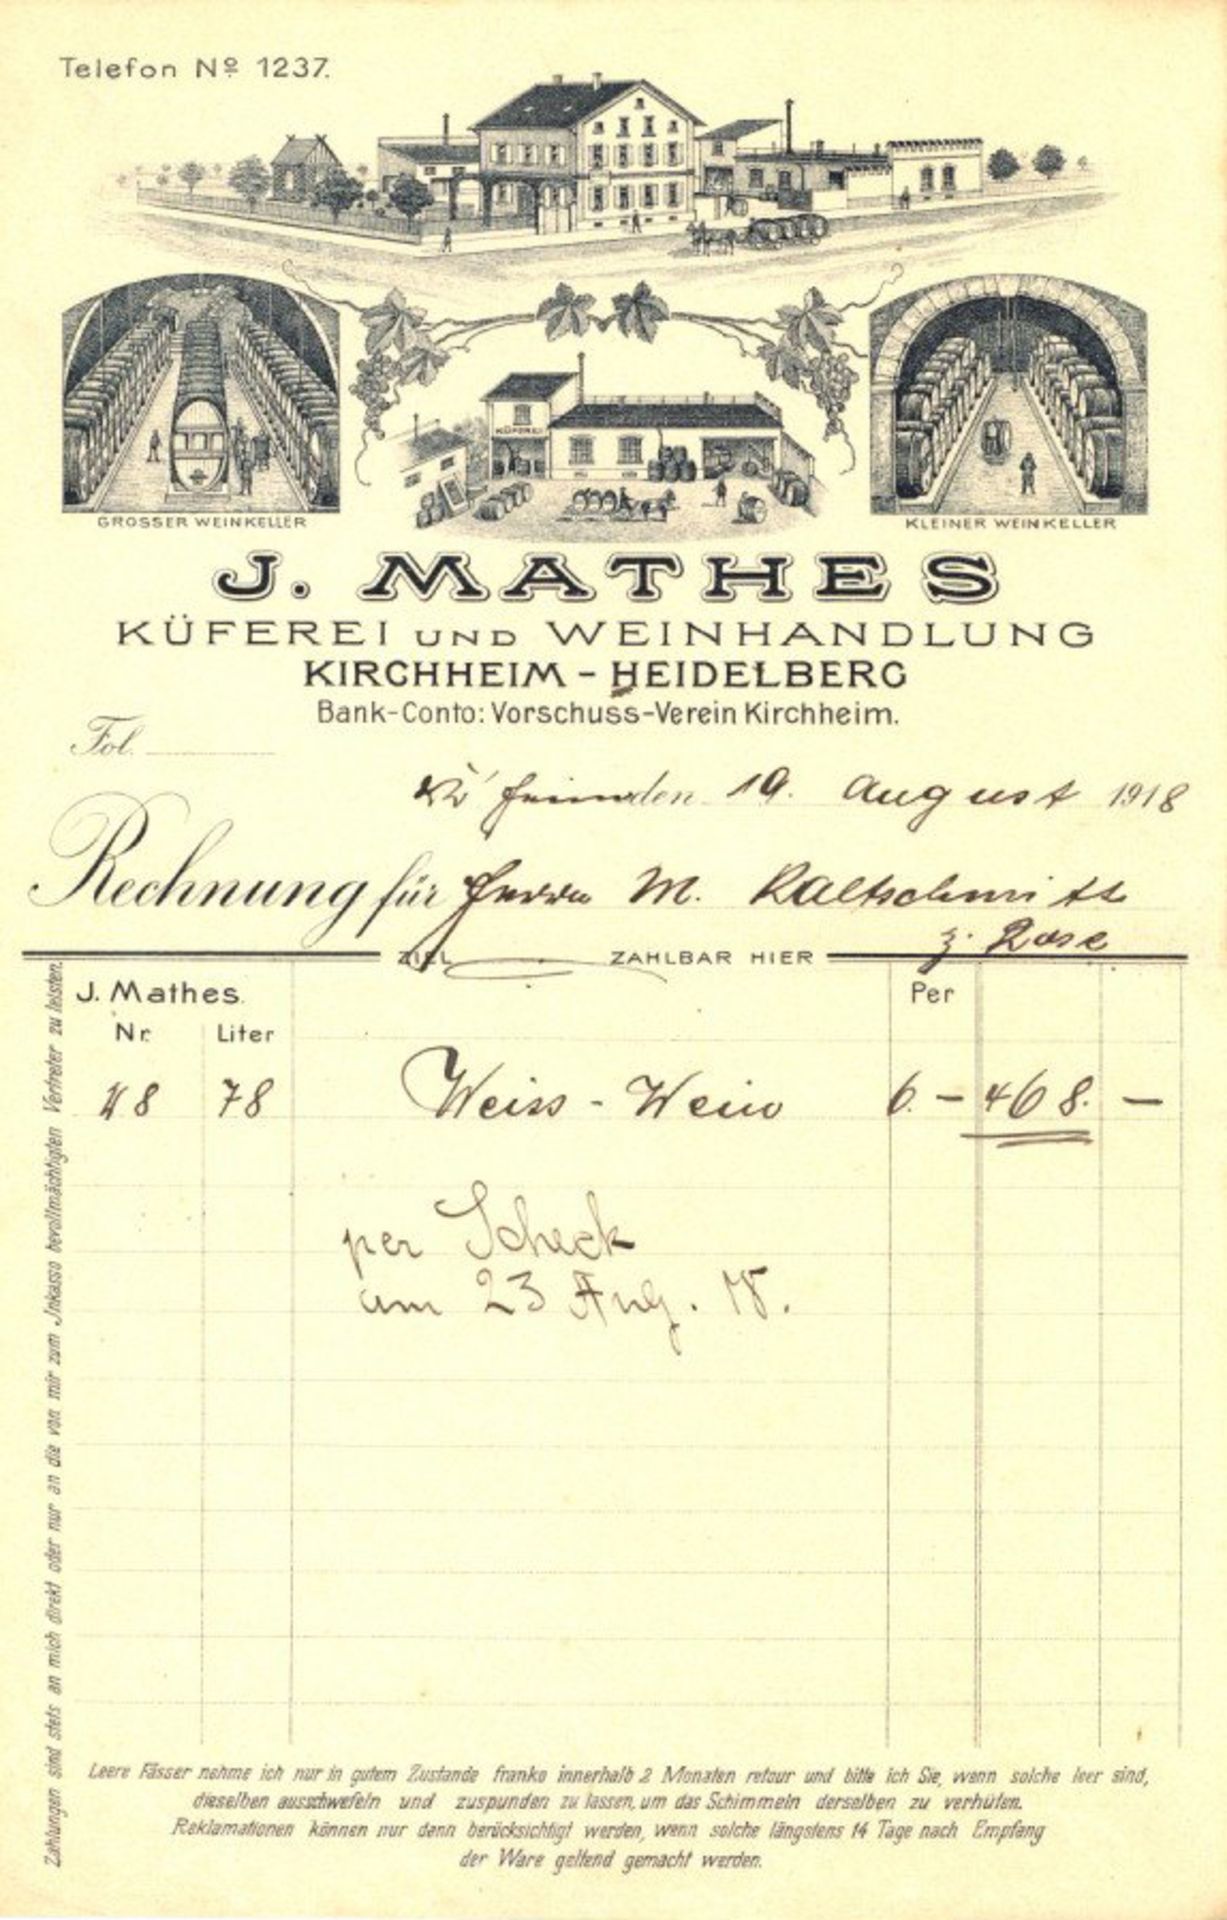 Telefon Nº 1237.
KÜFEREI
GROSSER WEINKELLER
KLEINER WEINKELLER
J. MATHES
KÜFEREI UND WEINHANDLUNG
KIRCHHEIM - HEIDELBERG
Bank-Conto: Vorschuss-Verein Kirchheim.
Fol.
den 19. August 1918
Rechnung für Herrn M. Kaltschmitt
z. Rose
ZIEL ZAHLBAR HIER
J. Mathes. Per
Nr. Liter
78 Weiss-Wein 6. - 468. -
per Scheck
am 23 Aug. 18.
Zahlungen sind stets an mich direkt oder nur an die von mir zum Inkasso bevollmächtigten Vertreter zu leisten.
Leere Fässer nehme ich nur in gutem Zustande franko innerhalb 2 Monaten retour und bitte ich Sie, wenn solche leer sind,
dieselben ausschwefeln und zuspunden zu lassen, um das Schimmeln derselben zu verhüten.
Reklamationen können nur dann berücksichtigt werden, wenn solche längstens 14 Tage nach Empfang
der Ware geltend gemacht werden.